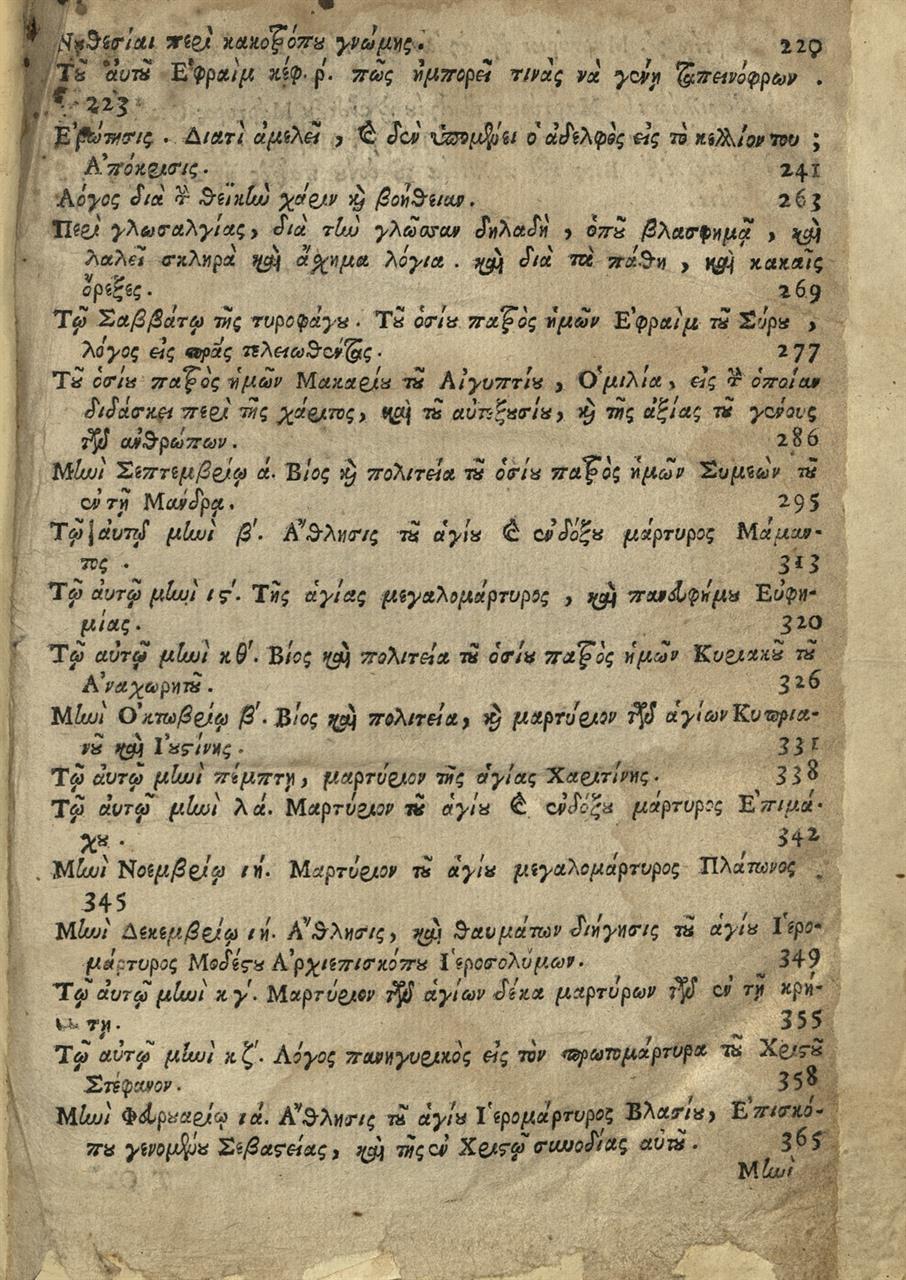 Νουθεσίαι περὶ κακοτρόπου γνώμης. 220
Τοῦ αὐτοῦ Ἐφραὶμ κέφ. ρ΄. πῶς ἠμπορεῖ τινὰς νὰ γένῃ ταπεινόφρων.
223
Ἐρώτησις. Διατὶ ἀμελεῖ, καὶ δὲν ὑπομένει ὁ ἀδελφὸς εἰς τὸ κελλίον του;
Ἀπόκρισις. 241
Λόγος διὰ τὴν θεϊκὴν χάριν καὶ βοήθειαν. 263
Περὶ γλωσαλγίας, διὰ τὴν γλῶσσαν δηλαδὴ, ὁποῦ βλασφημᾷ, καὶ
λαλεῖ σκληρὰ καὶ ἄχημα λόγια. καὶ διὰ τὰ πάθη, καὶ κακαῖς
ὄρεξες. 269
Τῷ Σαββάτῳ τῆς τυροφάγου. Τοῦ ὁσίου πατρὸς ἡμῶν Ἐφραὶμ τοῦ Σύρου,
λόγος εἰς πρᾶς τελειωθέντας. 277
Τοῦ ὁσίου πατρὸς ἡμῶν Μακαρίου τοῦ Αἰγυπτίου, Ὁμιλία, εἰς τὴν ὁποίαν
διδάσκει περὶ τῆς χάριτος, καὶ τοῦ αὐτεξουσίου, καὶ τῆς ἀξίας τοῦ γένους
τῶν ἀνθρώπων. 286
Μηνὶ Σεπτεμβρίῳ ά. Βίος καὶ πολιτεία τοῦ ὁσίου πατρὸς ἡμῶν Συμεὼν τοῦ
ἐν τῇ Μάνδρᾳ. 295
Τῷ αὐτῷ μηνὶ β΄. Ἄθλησις τοῦ ἁγίου καὶ ἐνδόξου μάρτυρος Μάμαν-
τος. 313
Τῷ αὐτῷ μηνὶ ις΄. Τῆς ἁγίας μεγαλομάρτυρος, καὶ πανευφήμου Εὐφη-
μίας. 320
Τῷ αὐτῷ μηνὶ κθ΄. Βίος καὶ πολιτεία τοῦ ὁσίου πατρὸς ἡμῶν Κυριακοῦ τοῦ
Ἀναχωρητοῦ. 326
Μηνὶ Ὀκτωβρίῳ β΄. Βίος καὶ πολιτεία, καὶ μαρτύριον τῶν ἁγίων Κυπρια-
νοῦ καὶ Ἰουστίνης. 331
Τῷ αὐτῷ μηνὶ πέμπτῃ, μαρτύριον τῆς ἁγίας Χαριτίνης. 338
Τῷ αὐτῷ μηνὶ λά. Μαρτύριον τοῦ ἁγίου καὶ ἐνδόξου μάρτυρος Ἐπιμά-
χου. 342
Μηνὶ Νοεμβρίῳ ιή. Μαρτύριον τοῦ ἁγίου μεγαλομάρτυρος Πλάτωνος
345
Μηνὶ Δεκεμβρίῳ ιή. Ἄθλησις, καὶ θαυμάτων διήγησις τοῦ ἁγίου Ἱερο-
μάρτυρος Μοδέστου Ἀρχιεπισκόπου Ἱεροσολύμων. 349
Τῷ αὐτῷ μηνὶ κγ΄. Μαρτύριον τῶν ἁγίων δέκα μαρτύρων τῶν ἐν τῇ κρή-
τῃ. 355
Τῷ αὐτῷ μηνὶ κζ΄. Λόγος πανηγυρικὸς εἰς τὸν πρωτομάρτυρα τοῦ Χριστοῦ
Στέφανον. 358
Μηνὶ Φευρουαρίῳ ιά. Ἄθλησις τοῦ ἁγίου Ἱερομάρτυρος Βλασίου, Ἐπισκό-
που γενομένου Σεβαστείας, καὶ τῆς ἐν Χριστῷ συνοδίας αὐτοῦ. 365
Μηνὶ